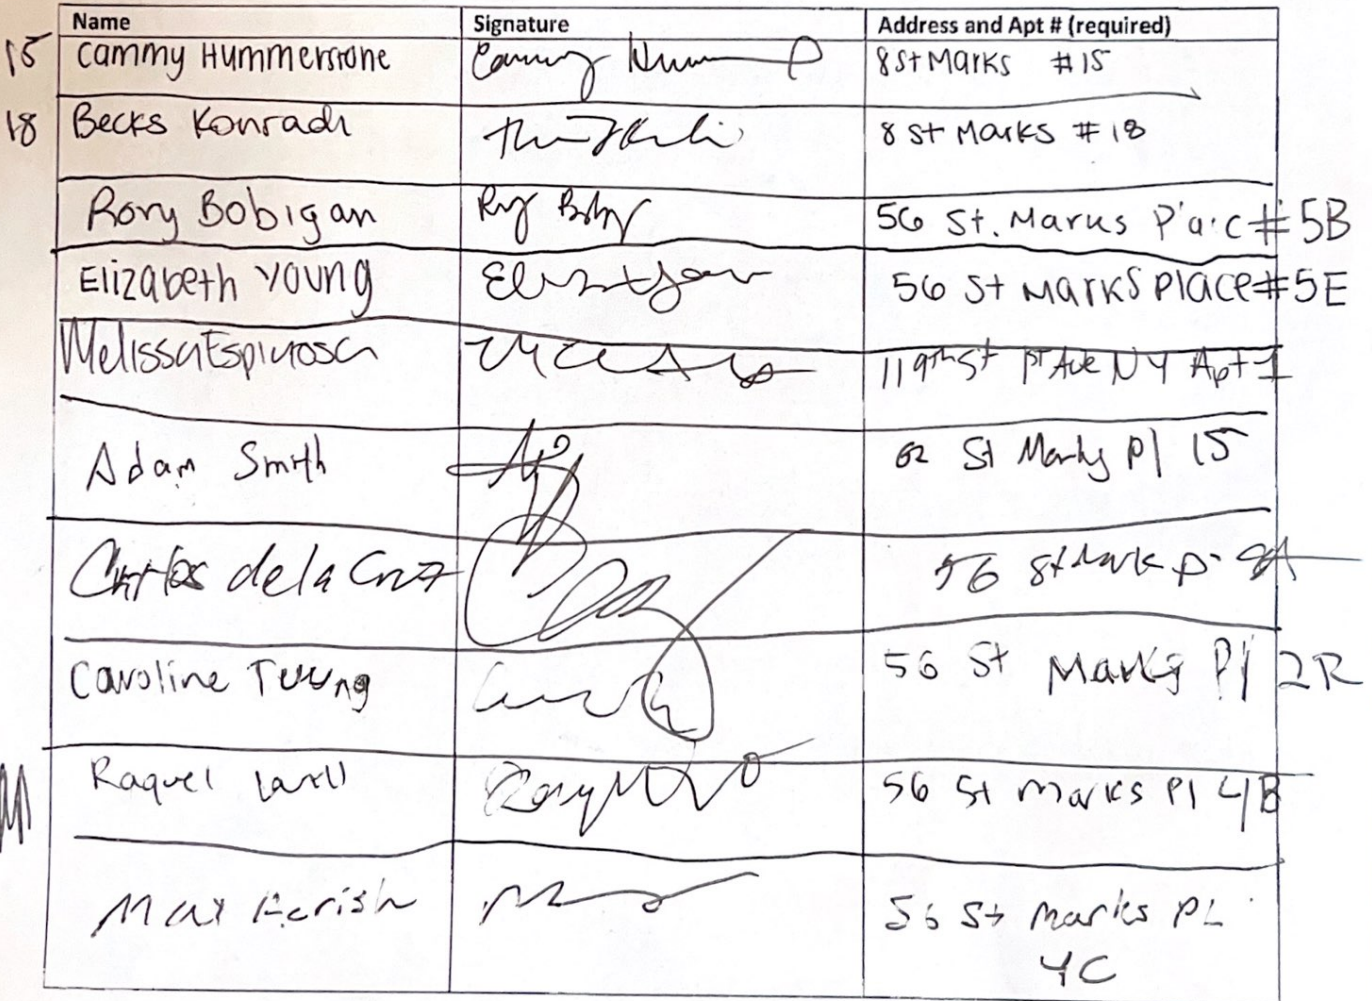 Name Signature Address and Apt # (required)
15 Cammy Hummerstone 8 St Marks #15
18 Becks Konradi 8 St Marks #18
Rory Bobigan 56 St. Marks #5B
Elizabeth Young 56 St Marks Place #5E
Melissa Espinosa 119th St 1st Ave NY Apt 1
Adam Smith 62 St Marks Pl 15
Carlos de la Cruz 56 St Mark
Caroline 56 St Marks Pl 2R
Raquel 56 St Marks Pl 4B
Max 56 St Marks PL
4C